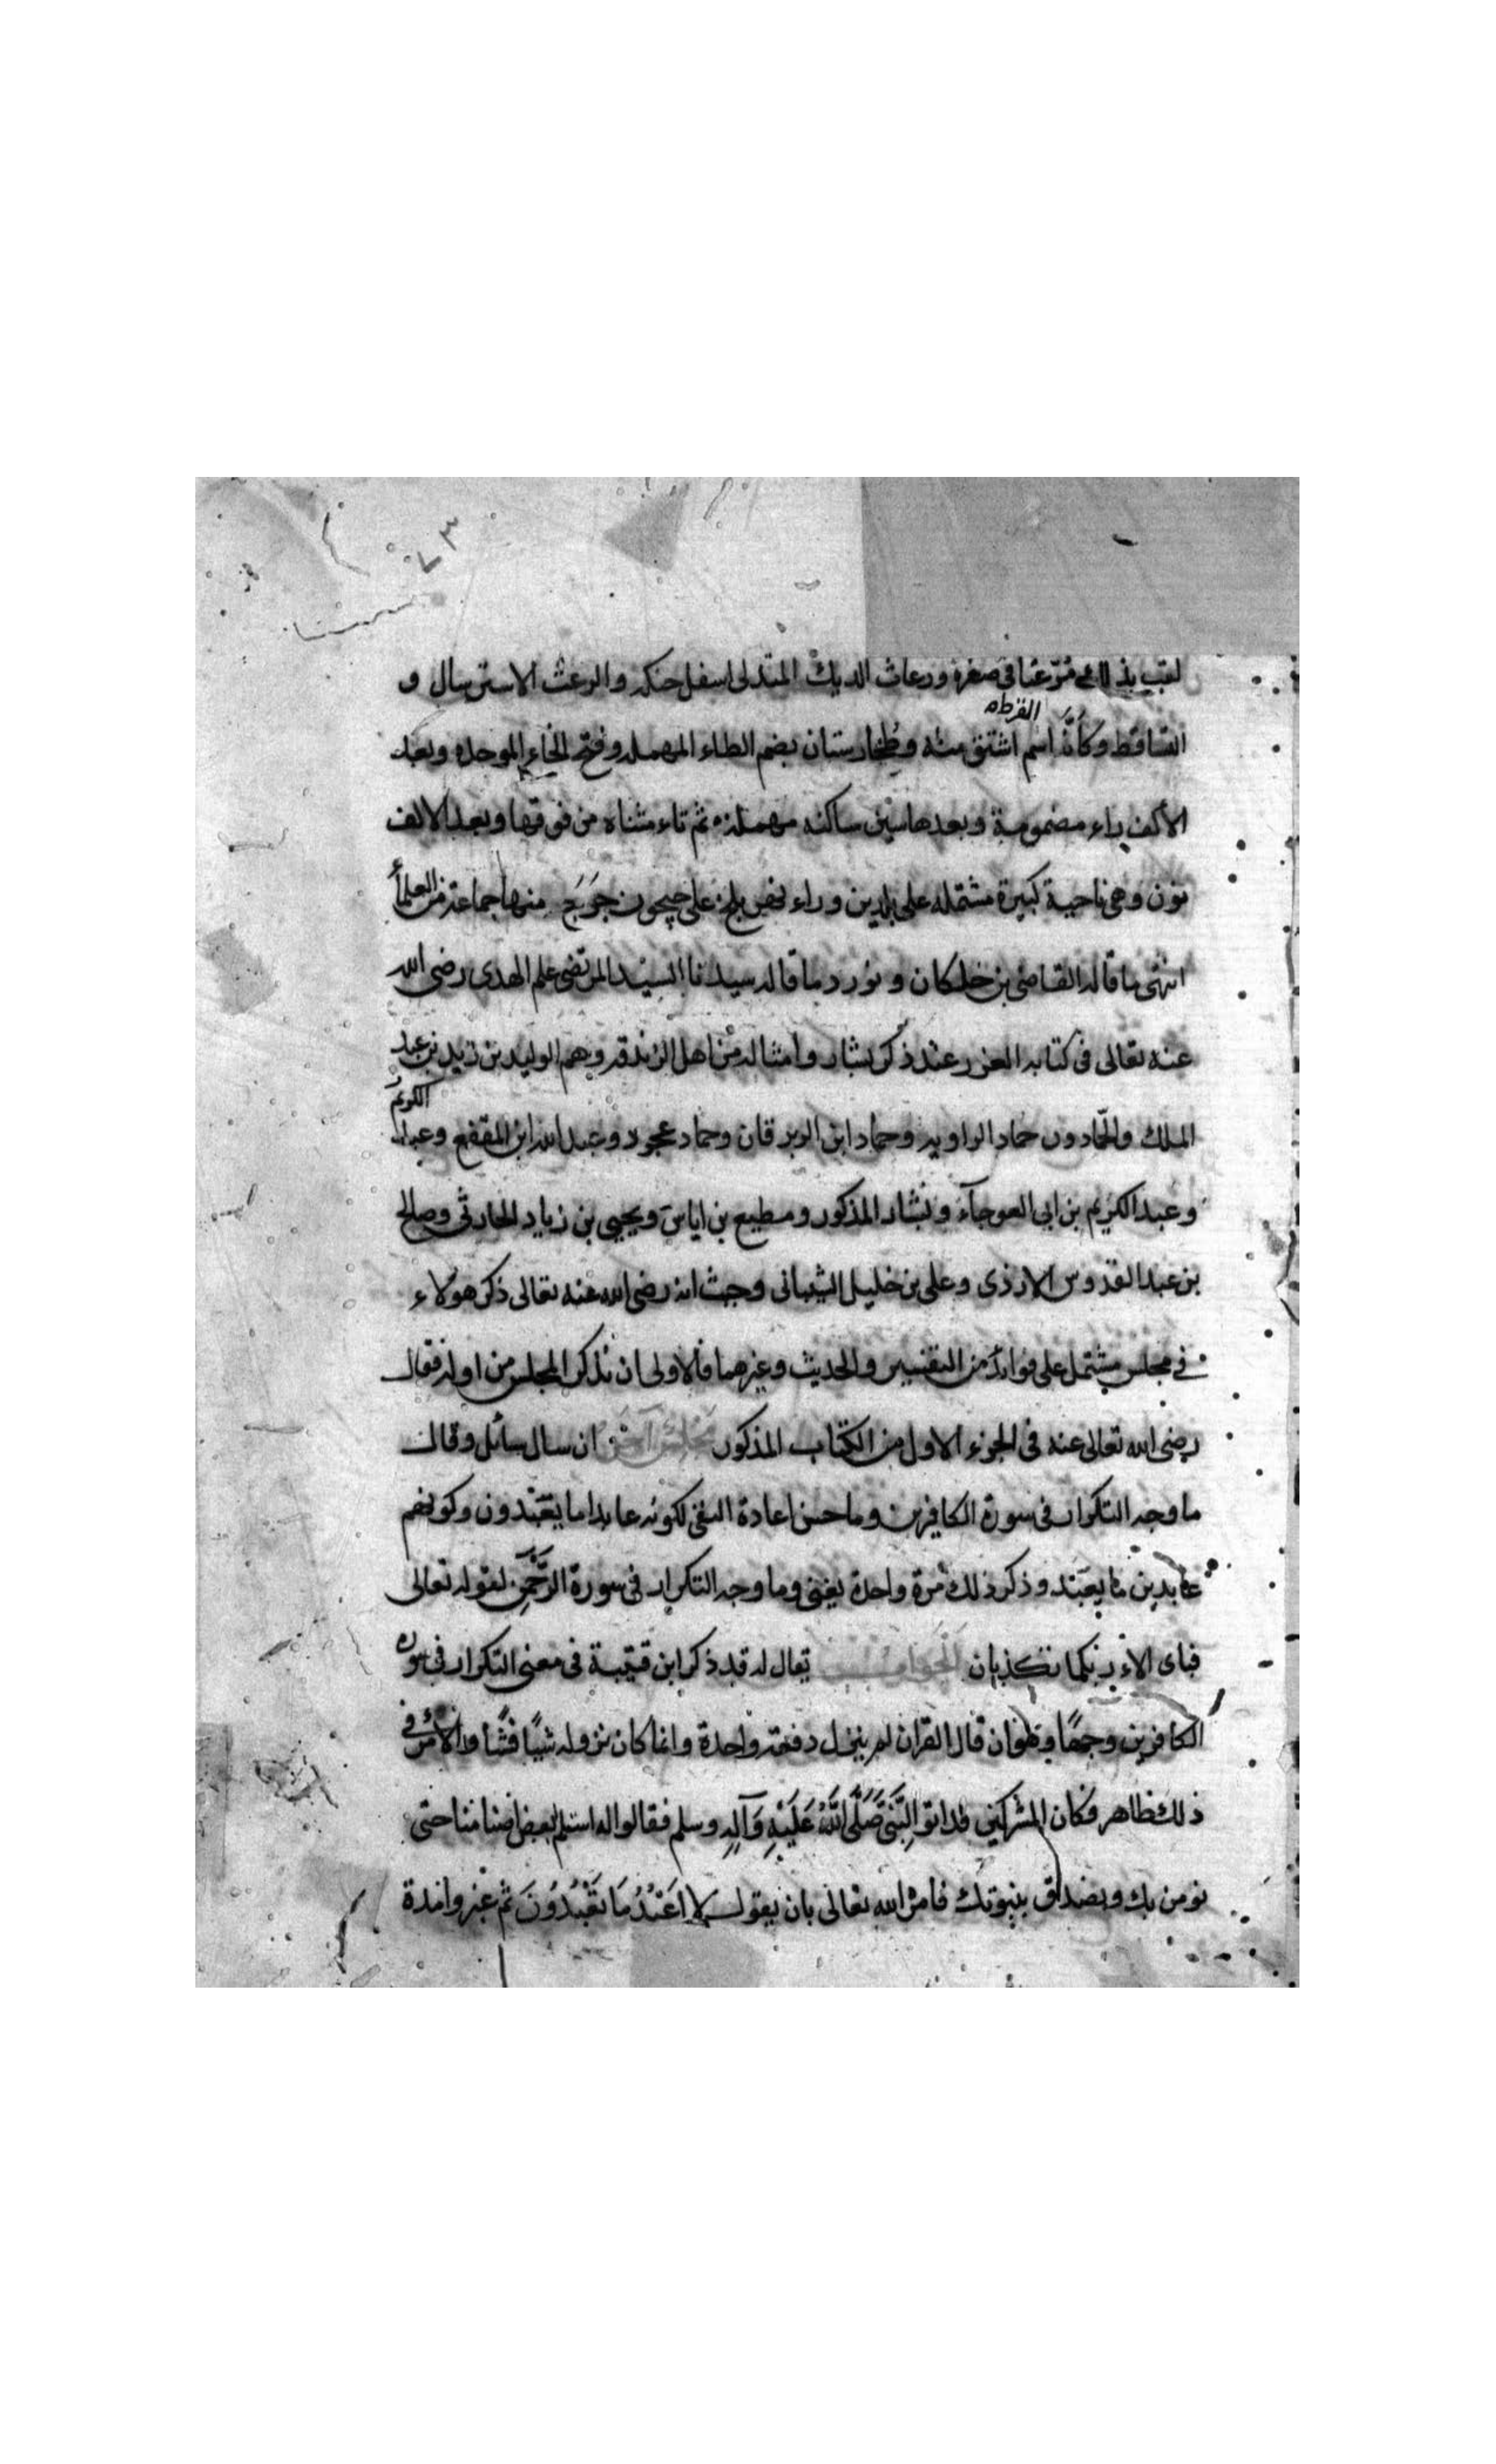 ٧٣
لقب بذلك مرعثا فى صغره ورعاث الديك المتدلى اسفل حنكه والرعث الاسترسال و
القرطه
التساقط وكأنّه اسم اشتق منه وطخارستان بضم الطاء المهمله وفتح الخاء الموحده وبعد
الالف راء مضمومة وبعدها سين ساكنه مهمله ثم تاء مثناه من فوقها وبعد الالف
نون وهى ناحية كبيرة مشتمله على بلدين وراء نهر بلخ على جيحون خرج منها جماعة من العلمأ
انتهى ما قاله القاضى بن خلكان ونورد ما قاله سيدنا السيد المرتضى علم الهدى رضى الله
عنه تعالى فى كتابه الغرر عند ذكر بشار وامثاله من اهل الزندقه وهم الوليد بن زيد بن عبد
الكريم
الملك والحمادون حماد الراويه وحماد ابن الزبرقان وحماد عجرد وعبد الله ابن المقفع وعبد
وعبد الكريم بن ابى العوجآء وبشار المذكور ومطيع بن اياس ويحيى بن زياد الحارثى وصالح
بن عبد القدوس الازدى وعلى بن خليل الشيبانى وحيث انه رضى الله عنه تعالى ذكر هولاء
فى مجلس يشتمل على فوائد من التفسير والحديث وغيرهما فالاولى ان نذكر المجلس من اوله فقال
رضى الله تعالى عنه فى الجزء الاول من الكتاب المذكور مجلس آخر ان سال سائل وقال
ما وجه التكرار فى سورة الكافرين وما حسن اعادة النفى لكونه عابدا ما يعبدون وكونهم
عابدين ما يعبد وذكر ذلك مرة واحدة يغنى وما وجه التكرار فى سورة الرحمن لقوله تعالى
فباى الاء ربكما تكذبان الجواب يقال له قد ذكر ابن قتيبة فى معنى التكرار فى سوره
الكافرين وجها وهو ان قال القران لم ينزل دفعة واحدة وانما كان نزوله شيئًا فشيئًا والامر فى
ذلك ظاهر فكان المشركين قد اتوا النبى صلى الله عليه وآله وسلم فقالوا له استلم بعض اصنامنا حتى
نومن بك ونصدق بنبوتك فامره الله تعالى بان يقول لا اعبد ما تعبدون ثم غبروا مدة